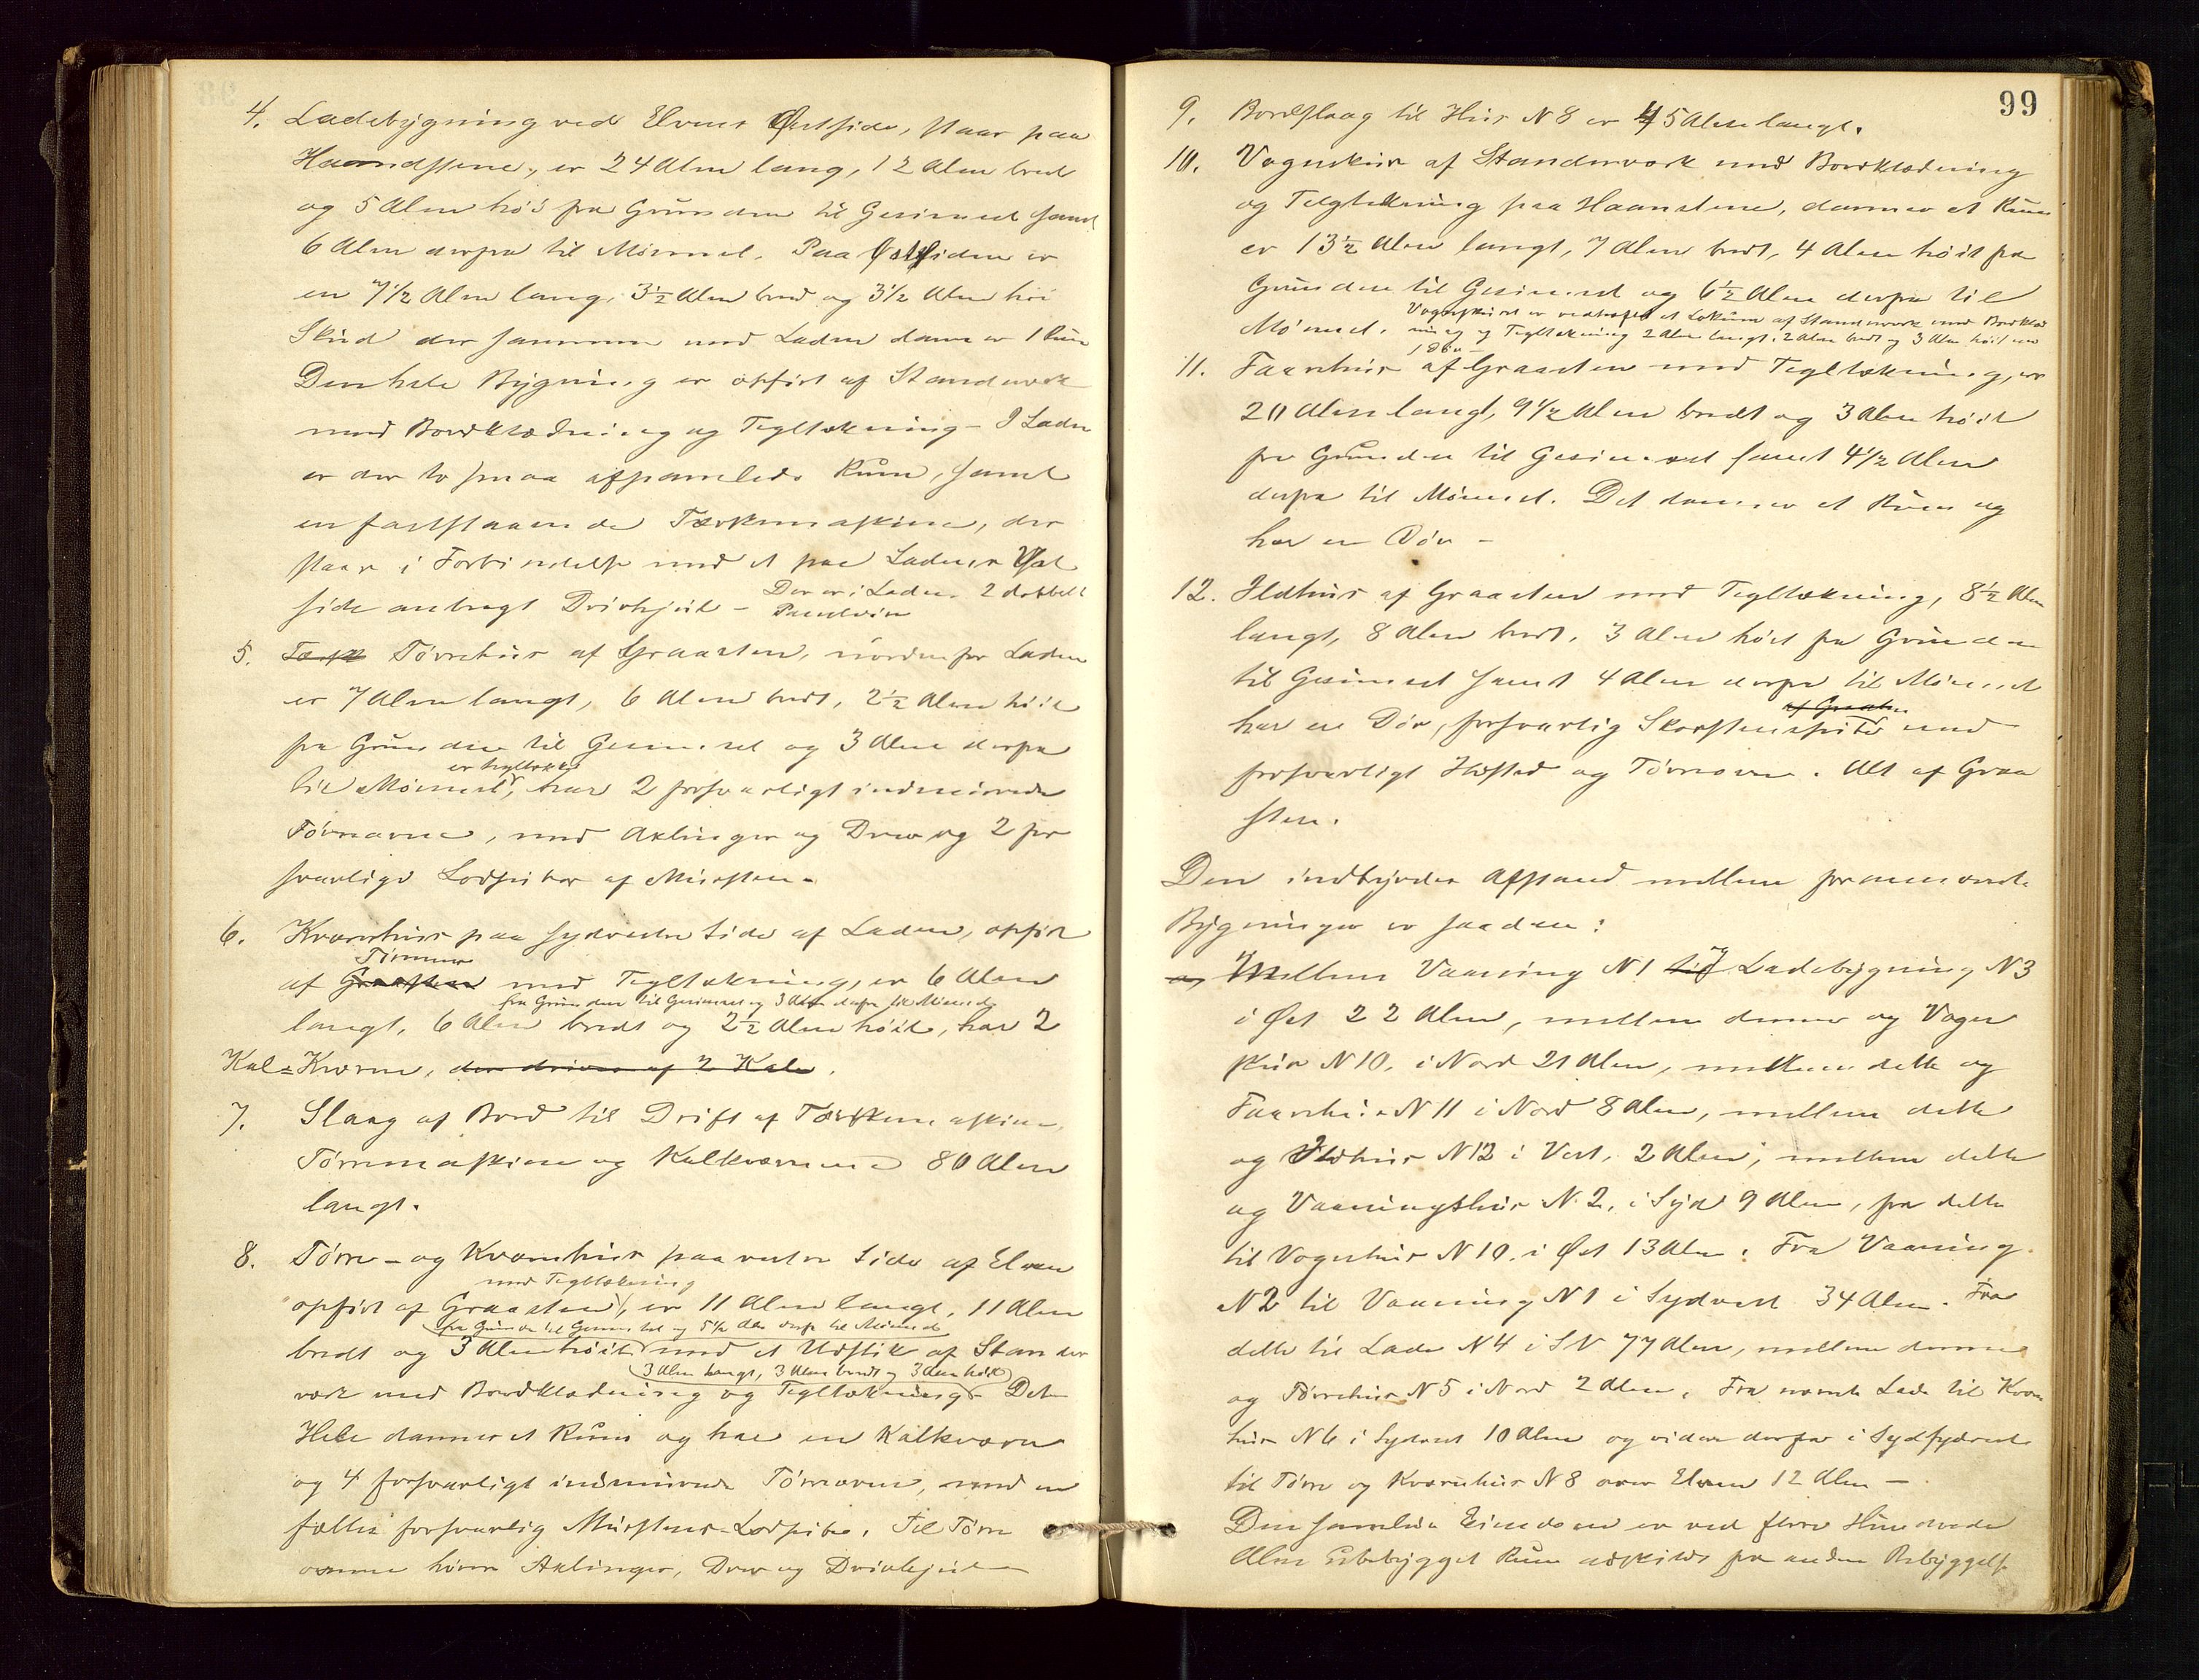 4. Ladebygning ved Elvens Østside, staar paa
Haandstene, er 24 Alen lang, 12 Alen bred
og 5 Alen høi fra Grunden til Gesimset samt
6 Alen derfra til Mønnet. Paa Østsiden er
en 7 1/2 Alen lang, 3 1/2 Alen bred og 3 1/2 Alen høi
Skud der sammen med Laden danner 1 Rum
Den hele Bygning er opført af Standverk
med Bordklædning og Tegltækning - I Laden
er der to smaa afpanelede Rum, samt
en fastslaaende Tærskemaskine, der
staar i Forbindelse med et paa Ladens Vest
side anbragt Drivhjul - Der er i Laden 2 dobbelt
5. Tærsk Tørrehus af Graasten, nordenfor Laden
er 7 Alen langt, 6 Alen bredt, 2 1/2 Alen høit
fra Grunden til Gesimset og 3 Alen derfra
er tegltækket
til Mønnet, har 2 forsvarligt indmurede
Tørreovne, med Axlinger og Drev og 2 for
svarlige Lodpiber af Mursten -
6. Kværnhus paa sydvestre Side af Laden, opført
Tømmer
af Graasten med Tegltækning, er 6 Alen
fra Grunden til Gesimset og 3 Alen derfra til Mønnet
langt, 6 Alen bredt og 2 1/2 Alen høit, har 2
Kal-Kværne, der drives af 2 Kale.
7. Slaag af Bord til Drift af Tærskemaskine
Tørremaskine og Kalkværnene 80 Alen
langt.
8. Tørre- og Kværnhus paa vestre Side af Elven
med Tegltækning
opført af Graasten, er 11 Alen langt, 11 Alen
fra Grunden til Gesimset og 5 1/2 Alen derfr til Mønnet
bredt og 3 Alen høit med et Udstik af Stander
3 Alen langt, 3 Alen bredt og 3 Alen høit
værk med Bordklædning og Tegltækning - Det
Hele danner et Rum og har en Kalkværn
og 4 forsvarligt indmurede Tørreovne, med en
fælles forsvarlig Murstens-Lodpibe. Til Tørre
ovnene hører Axlinger, Drev og Drivhjul -
99
9. Bordslaag til Hus N 8 er 45 Alen langt.
10. Vognskur af Standerværk med Bordklædning
og Tegltækning paa Haandstene, danner et Rum
er 13 1/2 Alen langt, 7 Alen bredt, 4 Alen høit fra
Grunden til Gesimset og 6 1/2 Alen derfra til
Vognskuret er vedhæftet et Lokum af Standerverk med Bordklæd
Mønnet. ning og Tegltækning 2 Alen langt, 2 Alen bredt og 3 Alen høit med
1 Dør -
11. Faarehus af Graasten med Tegltækning, er
20 Alen langt, 9 1/2 Alen bredt og 3 Alen høit
fra Grunden til Gesimset samt 4 1/2 Alen
derfra til Mønnet. Det danner et Rum og
har en Dør -
12. Ildhus af Graasten med Tegltækning, 8 1/2 Alen
langt, 8 Alen bredt, 3 Alen høit fra Grunden
til Gesimset samt 4 Alen derfra til Mønnet
af Graasten
har en Dør, forsvarlig Skorstenspibe med
forsvarligt Ildsted og Tørreovn. Alt af Graa
sten.
Den indbyrdes Afstand mellem forannævnte
Bygninger er saadan:
og Mellem Vaaning N 1 til og Ladebygning N 3
i Øst 22 Alen, mellem denne og Vogn
skur N 10. i Nord 21 Alen, mellem dette og
Faarehus N 11 i Nord 8 Alen, mellem dette
og Ildhus N 12 i Vest, 2 Alen, mellem dette
og Vaaningshus N 2. i Syd 9 Alen, fra dette
til Vognhus N 10. i Øst 13 Alen. Fra Vaaning
N 2 til Vaaning N 1 i Sydvest 34 Alen. Fra
dette til Lade N 4 i SV 77 Alen, mellem denne
og Tørrehus N 5 i Nord 2 Alen. Fra nævnte Lade til Kværn
hus N 6 i Sydvest 10 Alen og videre derfra i Sydsydvest
til Tørre og Kværnhus N 8 over Elven 12 Alen -
Den samlede Eiendom er ved flere Hundrede
Alen Ubebygget Rum adskildt fra anden Bebyggelse